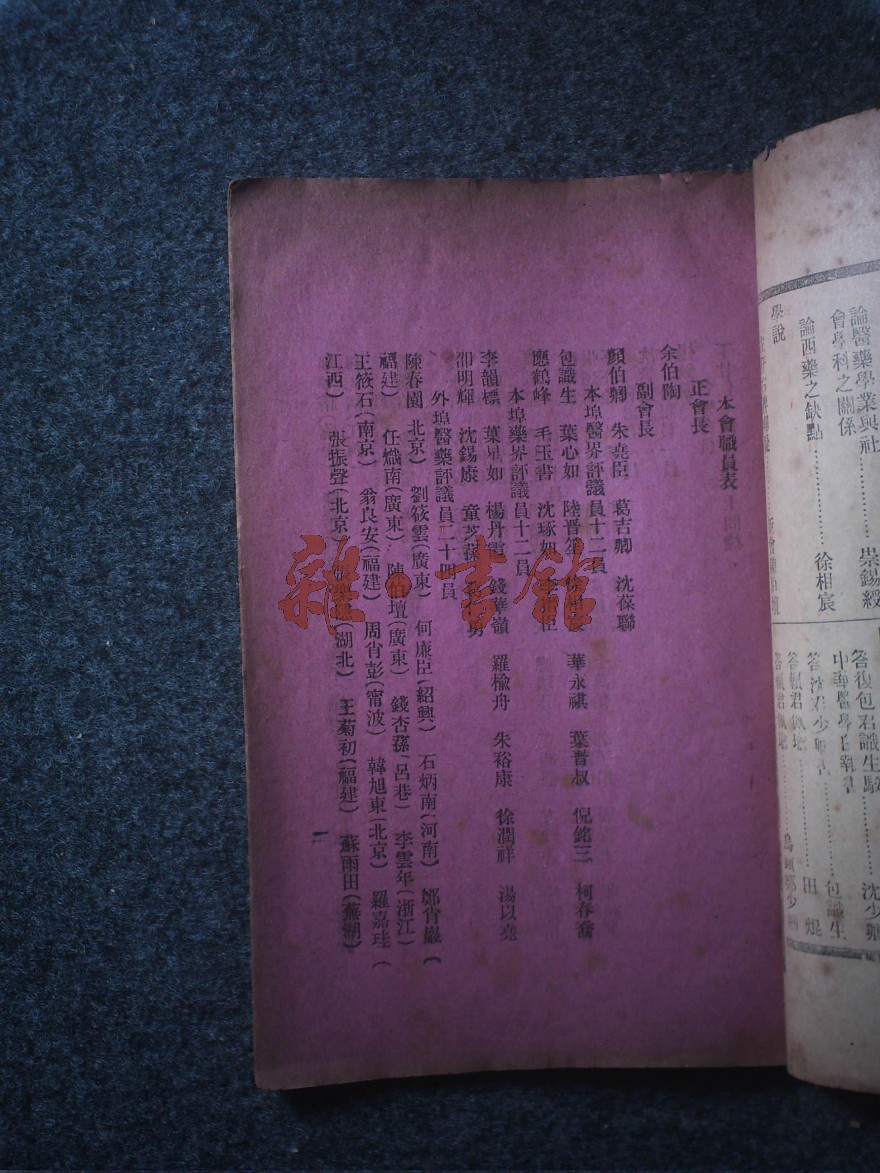 論醫藥學業與社
會學科之關係……崇錫綬
論西藥之缺點……徐相宸
學說
答復包君識生駁……沈少卿
中華醫學白話書……包識生
答沈君少卿書……田焜
本會職員表
正會長
余伯陶
副會長
顏伯卿 朱堯臣 葛吉卿 沈葆聯
本埠醫界評議員十二員
包識生 葉心如 陸晋笙 徐相宸 華永祺 葉晋叔 倪銘三 柯春喬
應鶴峰 毛玉書 沈琢如
本埠藥界評議員十二員
李韻標 葉星如 楊丹霞 錢華嶺 羅楡舟 朱裕康 徐潤祥 湯以堯
邵明輝 沈錫康 童芝蓀
外埠醫藥評議員二十四員
陳春園(北京) 劉筱雲(廣東) 何廉臣(紹興) 石炳南(河南) 鄭肖巖(
福建) 任熾南(廣東) 陳伯壇(廣東) 錢杏蓀(呂巷) 李雲年(浙江)
王筱石(南京) 翁良安(福建) 周肖彭(甯波) 韓旭東(北京) 羅嘉珪(
江西) 張振聲(北京) (湖北) 王菊初(福建) 蘇雨田(蕪湖)
二
雜·書館